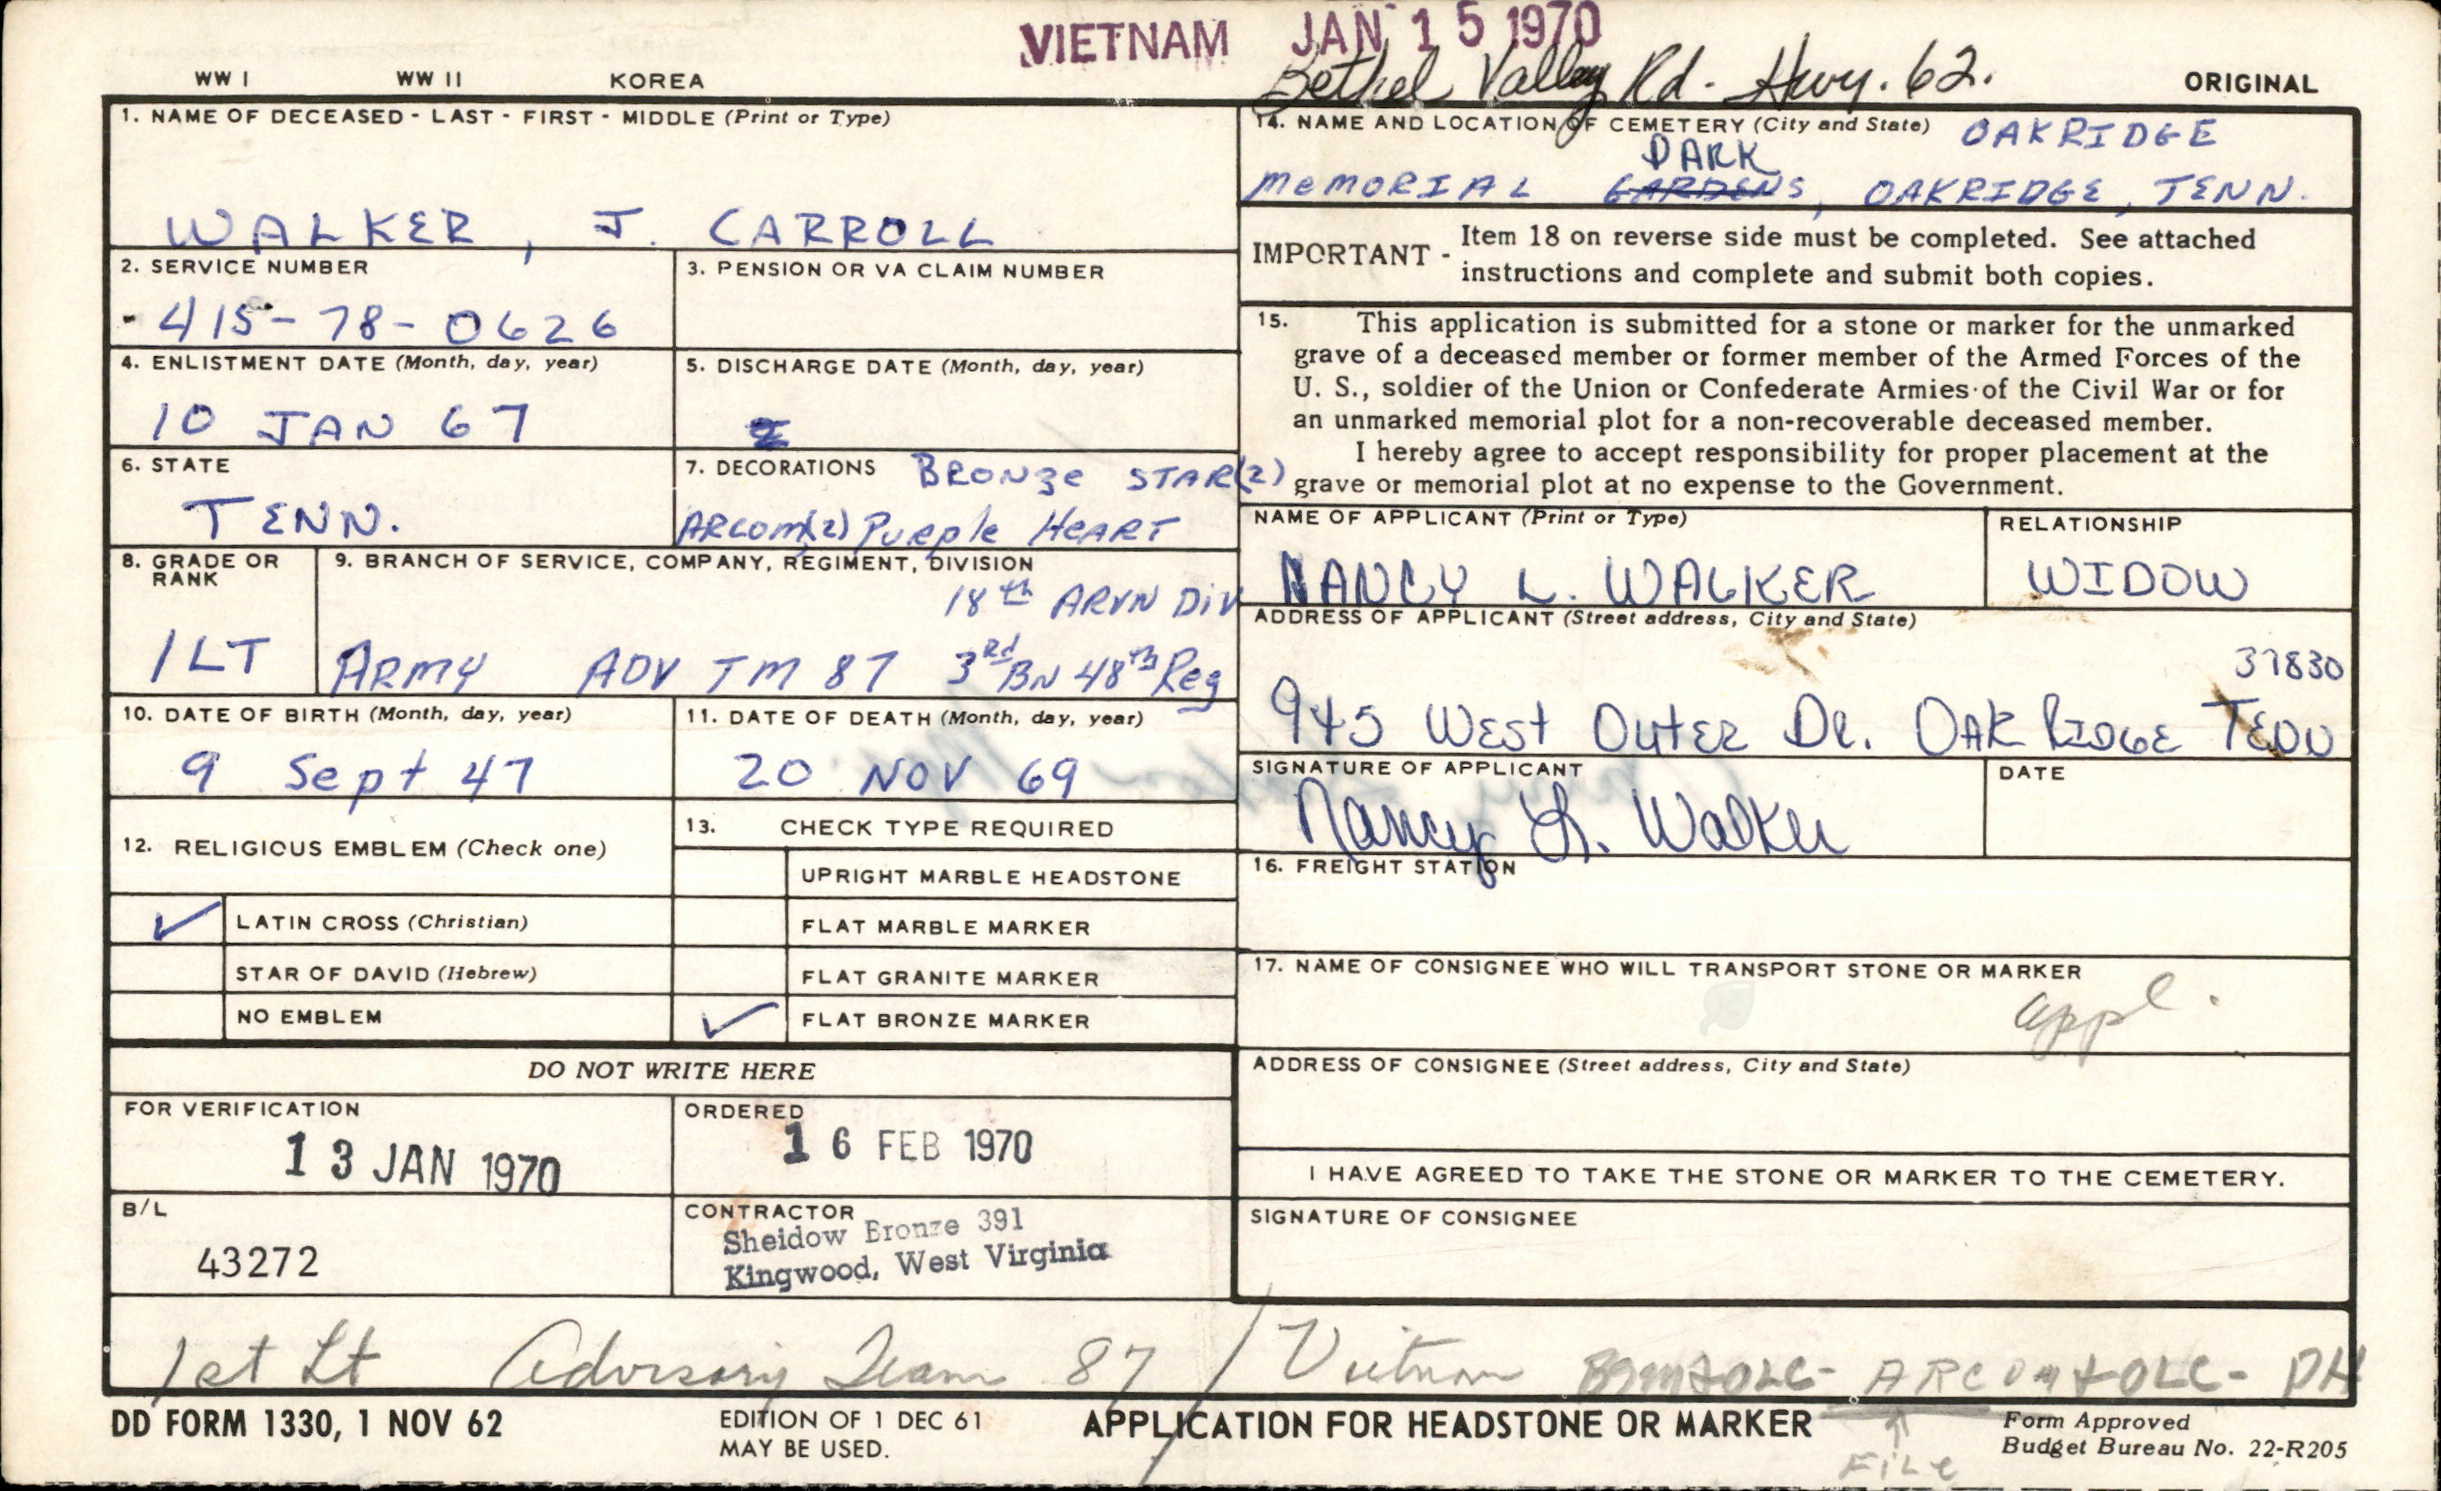 VIETNAM JAN 15 1970
WW I WW II KOREA
Bethel Valley Rd. Hwy. 62.
ORIGINAL
1. NAME OF DECEASED - LAST - FIRST - MIDDLE (Print or Type)
WALKER, J. CARROLL
2. SERVICE NUMBER
415-78-0626
3. PENSION OR VA CLAIM NUMBER
4. ENLISTMENT DATE (Month, day, year)
10 JAN 67
5. DISCHARGE DATE (Month, day, year)
6. STATE
TENN.
7. DECORATIONS BRONZE STAR(2)
ARCOM(2) PURPLE HEART
8. GRADE OR
RANK
1LT
9. BRANCH OF SERVICE, COMPANY, REGIMENT, DIVISION
18th ARVN DIV
ARMY ADV TM 87 3Rd BN 48th Reg
10. DATE OF BIRTH (Month, day, year)
9 Sept 47
11. DATE OF DEATH (Month, day, year)
20 NOV 69
12. RELIGIOUS EMBLEM (Check one)
✓ LATIN CROSS (Christian)
STAR OF DAVID (Hebrew)
NO EMBLEM
13. CHECK TYPE REQUIRED
UPRIGHT MARBLE HEADSTONE
FLAT MARBLE MARKER
FLAT GRANITE MARKER
✓ FLAT BRONZE MARKER
DO NOT WRITE HERE
FOR VERIFICATION
13 JAN 1970
ORDERED
16 FEB 1970
B/L
43272
CONTRACTOR
Sheidow Bronze 391
Kingwood, West Virginia
14. NAME AND LOCATION OF CEMETERY (City and State) OAKRIDGE
PARK
MEMORIAL GARDENS, OAKRIDGE, TENN.
IMPORTANT - Item 18 on reverse side must be completed. See attached
instructions and complete and submit both copies.
15. This application is submitted for a stone or marker for the unmarked
grave of a deceased member or former member of the Armed Forces of the
U. S., soldier of the Union or Confederate Armies of the Civil War or for
an unmarked memorial plot for a non-recoverable deceased member.
I hereby agree to accept responsibility for proper placement at the
grave or memorial plot at no expense to the Government.
NAME OF APPLICANT (Print or Type)
NANCY L. WALKER
RELATIONSHIP
WIDOW
ADDRESS OF APPLICANT (Street address, City and State)
37830
945 WEST OUTER DR. OAK RIDGE TENN
SIGNATURE OF APPLICANT
Nancy L. Walker
DATE
16. FREIGHT STATION
17. NAME OF CONSIGNEE WHO WILL TRANSPORT STONE OR MARKER
appl.
ADDRESS OF CONSIGNEE (Street address, City and State)
I HAVE AGREED TO TAKE THE STONE OR MARKER TO THE CEMETERY.
SIGNATURE OF CONSIGNEE
1st Lt Advisory Team 87 / Vietnam BSM&OLC- ARCOM&OLC- PH
DD FORM 1330, 1 NOV 62
EDITION OF 1 DEC 61
MAY BE USED.
APPLICATION FOR HEADSTONE OR MARKER
FILE
Form Approved
Budget Bureau No. 22-R205